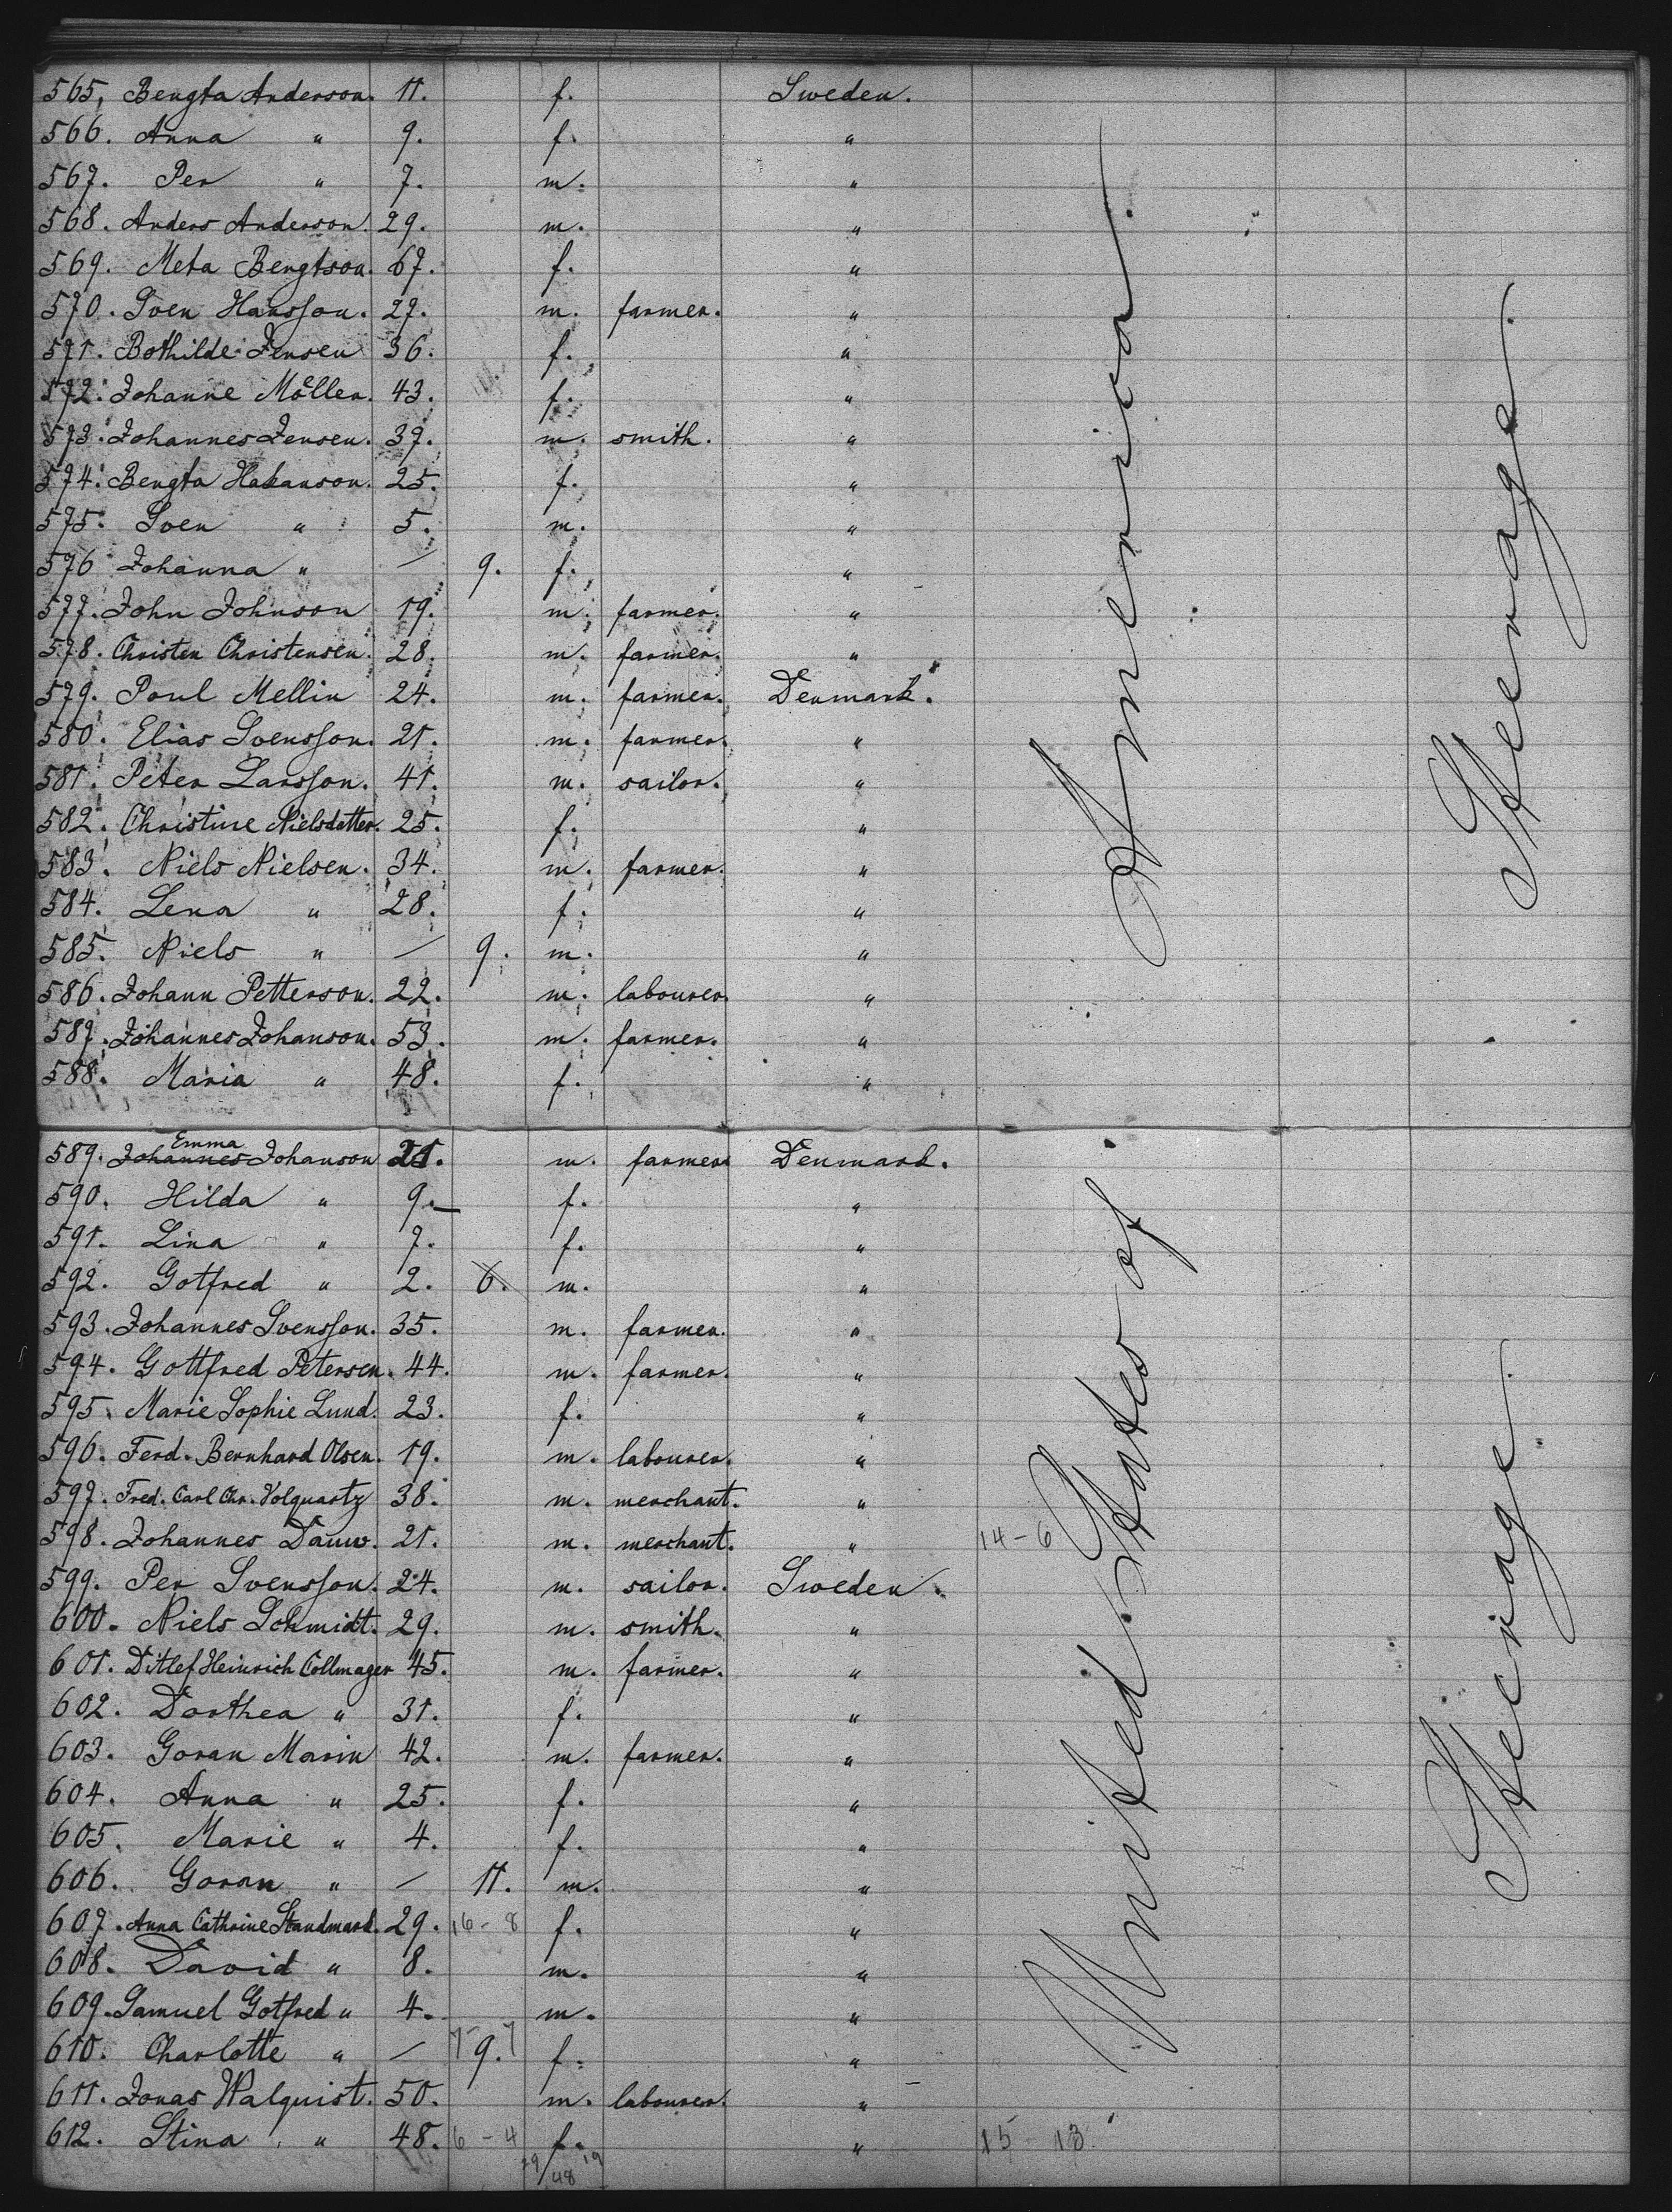 565. Bengta Anderson. 11. f. Sweden.
566. Anna " 9. f. "
567. Per " 7. m. "
568. Anders Anderson. 29. m. "
569. Meta Bengtson. 67. f. "
570. Sven Hansson. 27. m. farmer. "
571. Bothilde Jensen 36. f. "
572. Johanne Möller. 43. f. "
573. Johannes Jensen. 37. m. smith. "
574. Bengta Hakanson. 25. f. "
575. Sven " 5. m. "
576 Johanna " — 9. f. "
577. John Johnson 19. m. farmer. "
578. Christen Christensen. 28. m. farmer. "
579. Poul Mellin 24. m. farmer. Denmark.
580. Elias Svensson. 21. m. farmer. "
581. Peter Larsson. 41. m. sailor. "
582. Christine Nielsdatter. 25. f. "
583. Niels Nielsen. 34. m. farmer. "
584. Lena " 28. f. "
585. Niels " — 9. m. "
586. Johann Petterson. 22. m. labourer. "
587. Johannes Johanson. 53. m. farmer. "
588. Maria " 48. f. "
Emma
589. Johannes Johanson 21. m. farmer Denmark.
590. Hilda " 9. f. "
591. Lina " 7. f. "
592. Gotfred " 2. 6. m. "
593. Johannes Svensson. 35. m. farmer. "
594. Gottfred Petersen. 44. m. farmer. "
595. Marie Sophie Lund. 23. f. "
596. Ferd. Bernhard Olsen. 19. m. labourer. "
597. Fred. Carl Chr. Volquartz 38. m. merchant. "
598. Johannes Dauw. 21. m. merchant. " 14-6
599. Per Svensson. 24. m. sailor. Sweden.
600. Niels Schmidt. 29. m. smith. "
601. Ditlef Heinrich Collmager 45. m. farmer. "
602. Dorthea " 31. f. "
603. Goran Marin 42. m. farmer. "
604. Anna " 25. f. "
605. Marie " 4. f. "
606. Goran " — 11. m. "
607. Anna Cathrine Strandmark. 29. 16-8 f. "
608. David " 8. m. "
609. Samuel Gotfred " 4. m. "
610. Charlotte " — 9. f. "
611. Jonas Walquist. 50. m. labourer. "
612. Stina " 48. 6-4 f. " 15 13
29/48 19
United States of America.
Steerage.
Steerage.